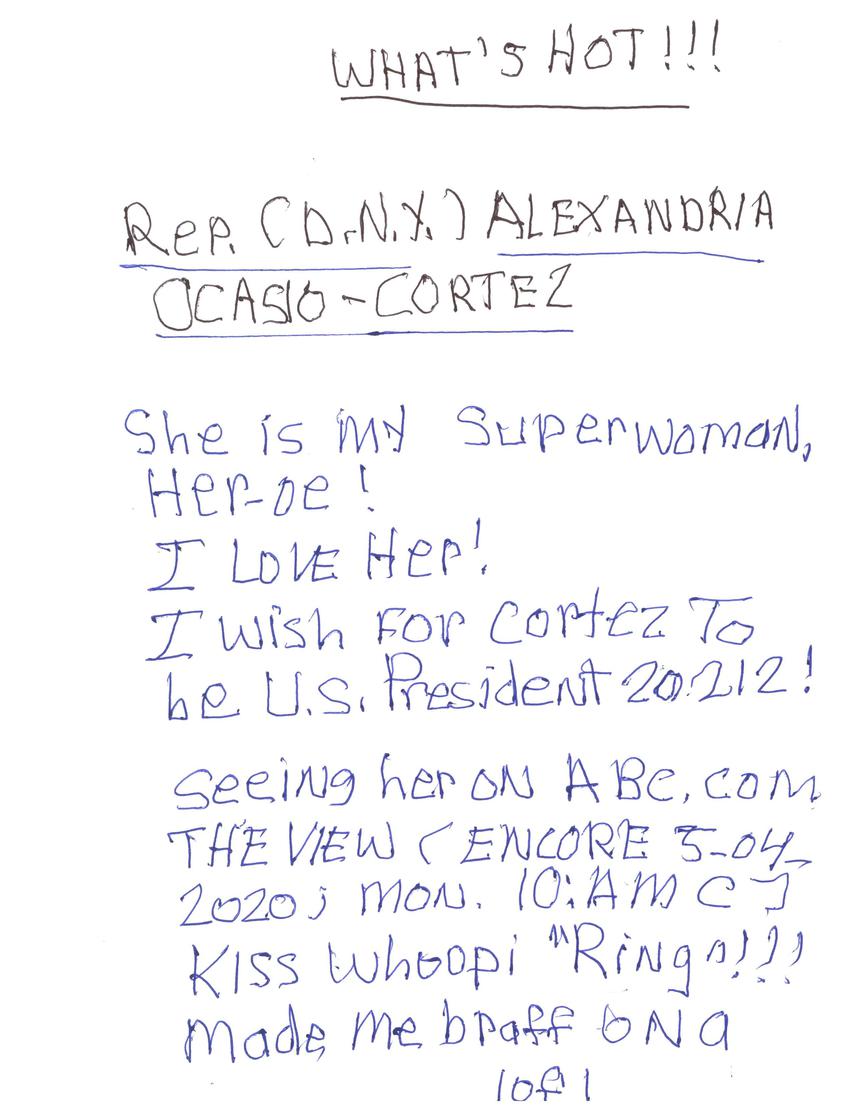 WHAT'S HOT!!!
Rep. (D.N.Y.) ALEXANDRIA
OCASIO-CORTEZ
She is my Superwoman,
Her-oe!
I LOVE Her!
I wish For Cortez To
be U.S. President 20.212!
Seeing her ON ABc.com
THE VIEW (ENCORE 5-04-
2020; MON. 10:AM C)
KISS Whoopi "Ring"!!!
made me braff ON a
1of1